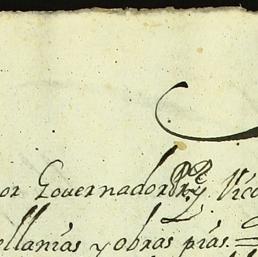 or Gouernador y Vic
ellanias y obras pias.